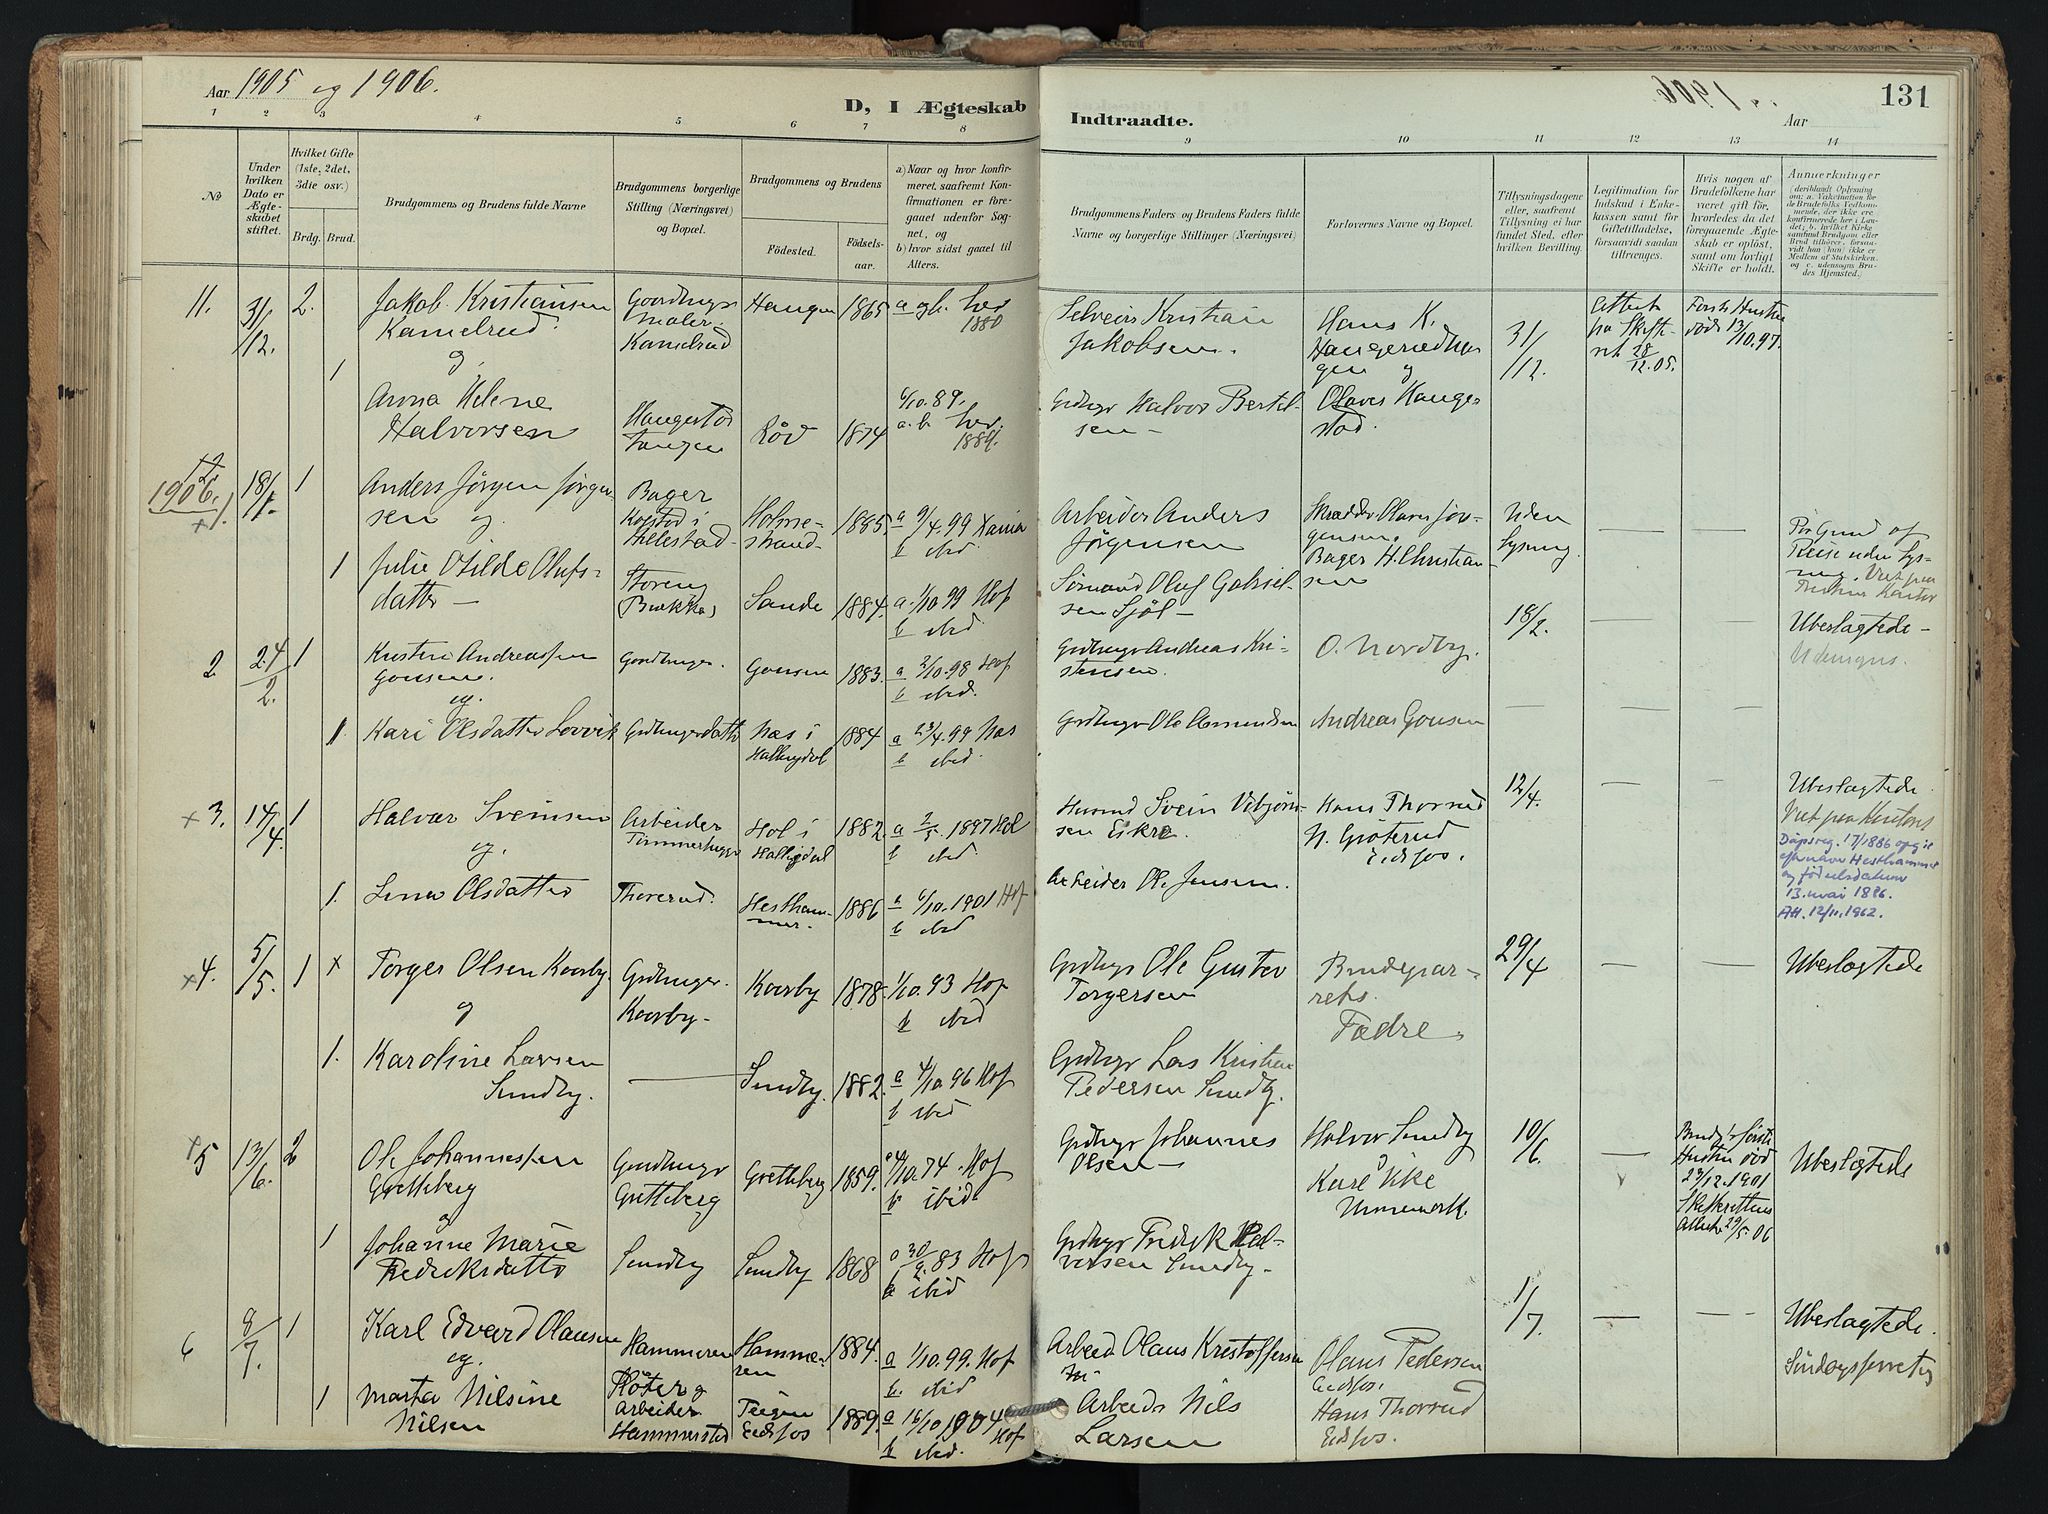 Aar 1905 og 1906.
D, I Ægteskab
Indtraadte.
Aar
131
1 2 3 4 5 6 7 8 9 10 11 12 13 14
No
Under hvilken Dato er Ægteskabet stiftet.
Hvilket Gifte (1ste, 2det, 3die osv.)
Brdg. Brud.
Brudgommens og Brudens fulde Navne
Brudgommens borgerlige Stilling (Næringsvei) og Bopæl.
Brudgommens og Brudens
Fødested.
Fødsels-aar.
a) Naar og hvor konfirmeret, saafremt Konfirmationen er foregaaet udenfor Sognet, og
b) hvor sidst gaaet til Alters.
Brudgommens Faders og Brudens Faders fulde Navne og borgerlige Stillinger (Næringsvei)
Forlovernes Navne og Bopæl.
Tillysningsdagene eller, saafremt Tillysning ei har fundet Sted, efter hvilken Bevilling.
Legitimation for Indskud i Enkekassen samt for Giftetilladelse, forsaavidt saadan tiltrænges.
Hvis nogen af Brudefolkene har været gift før, hvorledes da det foregaaende Ægteskab er opløst, samt om lovligt Skifte er holdt.
Anmerkninger
11. 31/12. 2. Jakob Kristiansen Kamelrud. og
Kamelrud
Haugen 1865 a og b. her 1880
Selveier Kristian Jakobsen.
Hans K. og
31/12.
Attest fra Skifteret 28/12.05.
Første Hustru død 13/10.97.
1 Anna Helene Halvorsen
Røv 1874 6/10.89. a. b. her. 1889.
Grdbrgr Halvor Bertelsen
Olaves Haugestad.
1906. 1. 18/1. 1 Anders Jørgen Jørgensen og
Bager i Hillestad
Holmestrand 1885. a 9/4.99 Xania b ibid
Arbeider Anders Jørgensen
Skrædder Olaves Jørgensen.
Bager H. Christiansen
Uden Lysning.
Paa Grund af Reise uden Lysning.
1 Julie Otilde Olufsdatter
Sande 1884. a. 1/10 99 Hof b ibid
Sømand Oluf Gabrielsen
2. 24/2. 1 Kristen Andreassen Gonsen. og.
Gaardbruger. Gonsen 1883. a 2/10.98 Hof b ibid.
Grdbrgr Andreas Kristensen.
O. Nordby.
18/2.
Ubeslægtede
1 Kari Olsdatter Lovvik
Grdbrugerdatter Næs i Hallingdal 1884 a 23/4.99 Næs b ibid.
Andreas Gonsen
3. 14/4. 1 Halvar Sveinsen og.
Arbeider Tømmerhugger
Hol i Hallingdal 1882 a 2/5.1897 Hol b ibid.
Husmd Svein
Hans Thorrud
N. Grøterud Eidsfos.
12/4.
Ubeslægtede
Dåpsreg. 17/1886 oppgir etternavn Hesthammer og fødselsdatum 13. mai 1886.
Att. 12/11.1962.
1. Lina Olsdatter
Thorerud. Hesthammer. 1886 a 6/10.1901 Hof b ibid
Arbeider Ole Jensen.
4. 5/5. 1 Torger Olsen Kovrby. og
Grdbruger. Kovrby.
Kovrby 1878. 1/10.93 Hof b ibid
Grdbrgr Ole Gustav Torgersen
Brudeparrets Fædre.
29/4
Ubeslægtede
1. Karoline Larsen Sundby.
Sundby. 1882. a 4/10.96 Hof b ibid
Grdbrgr Lars Kristian Pedersen Sundby.
5 13/6. 2 Ole Johannessen Gretteberg og
Gaardbrugr Gretteberg
Gretteberg 1859. 4/10.74. Hof b ibid
Grdbrgr Johannes Olsen
Halvor Sundby
10/6.
Brudg. første Hustru død 23/12.1901
Attest 29/5.06
Ubeslægtede
1 Johanne Marie Fredriksdatter
Sundby Sundby 1868 a 30/9.83 Hof b ibid
Grdbrgr Fredrik Halvorsen Sundby.
6 8/7. 1 Karl Edvard Olausen og.
Hammeren Hammeren 1884. a 1/10.99. Hof b. ibid
Arbeid Olaus Kristoffersen
Olaus Pedersen Eidsfos.
1/7.
Ubeslægtede.
1 Marta Nilsine Nilsen
Arbeider
Teigen Eidsfos 1889. a 16/10.1904 Hof b ibid.
Arbeider Nils Larsen
Hans Thorrud Eidsfos.